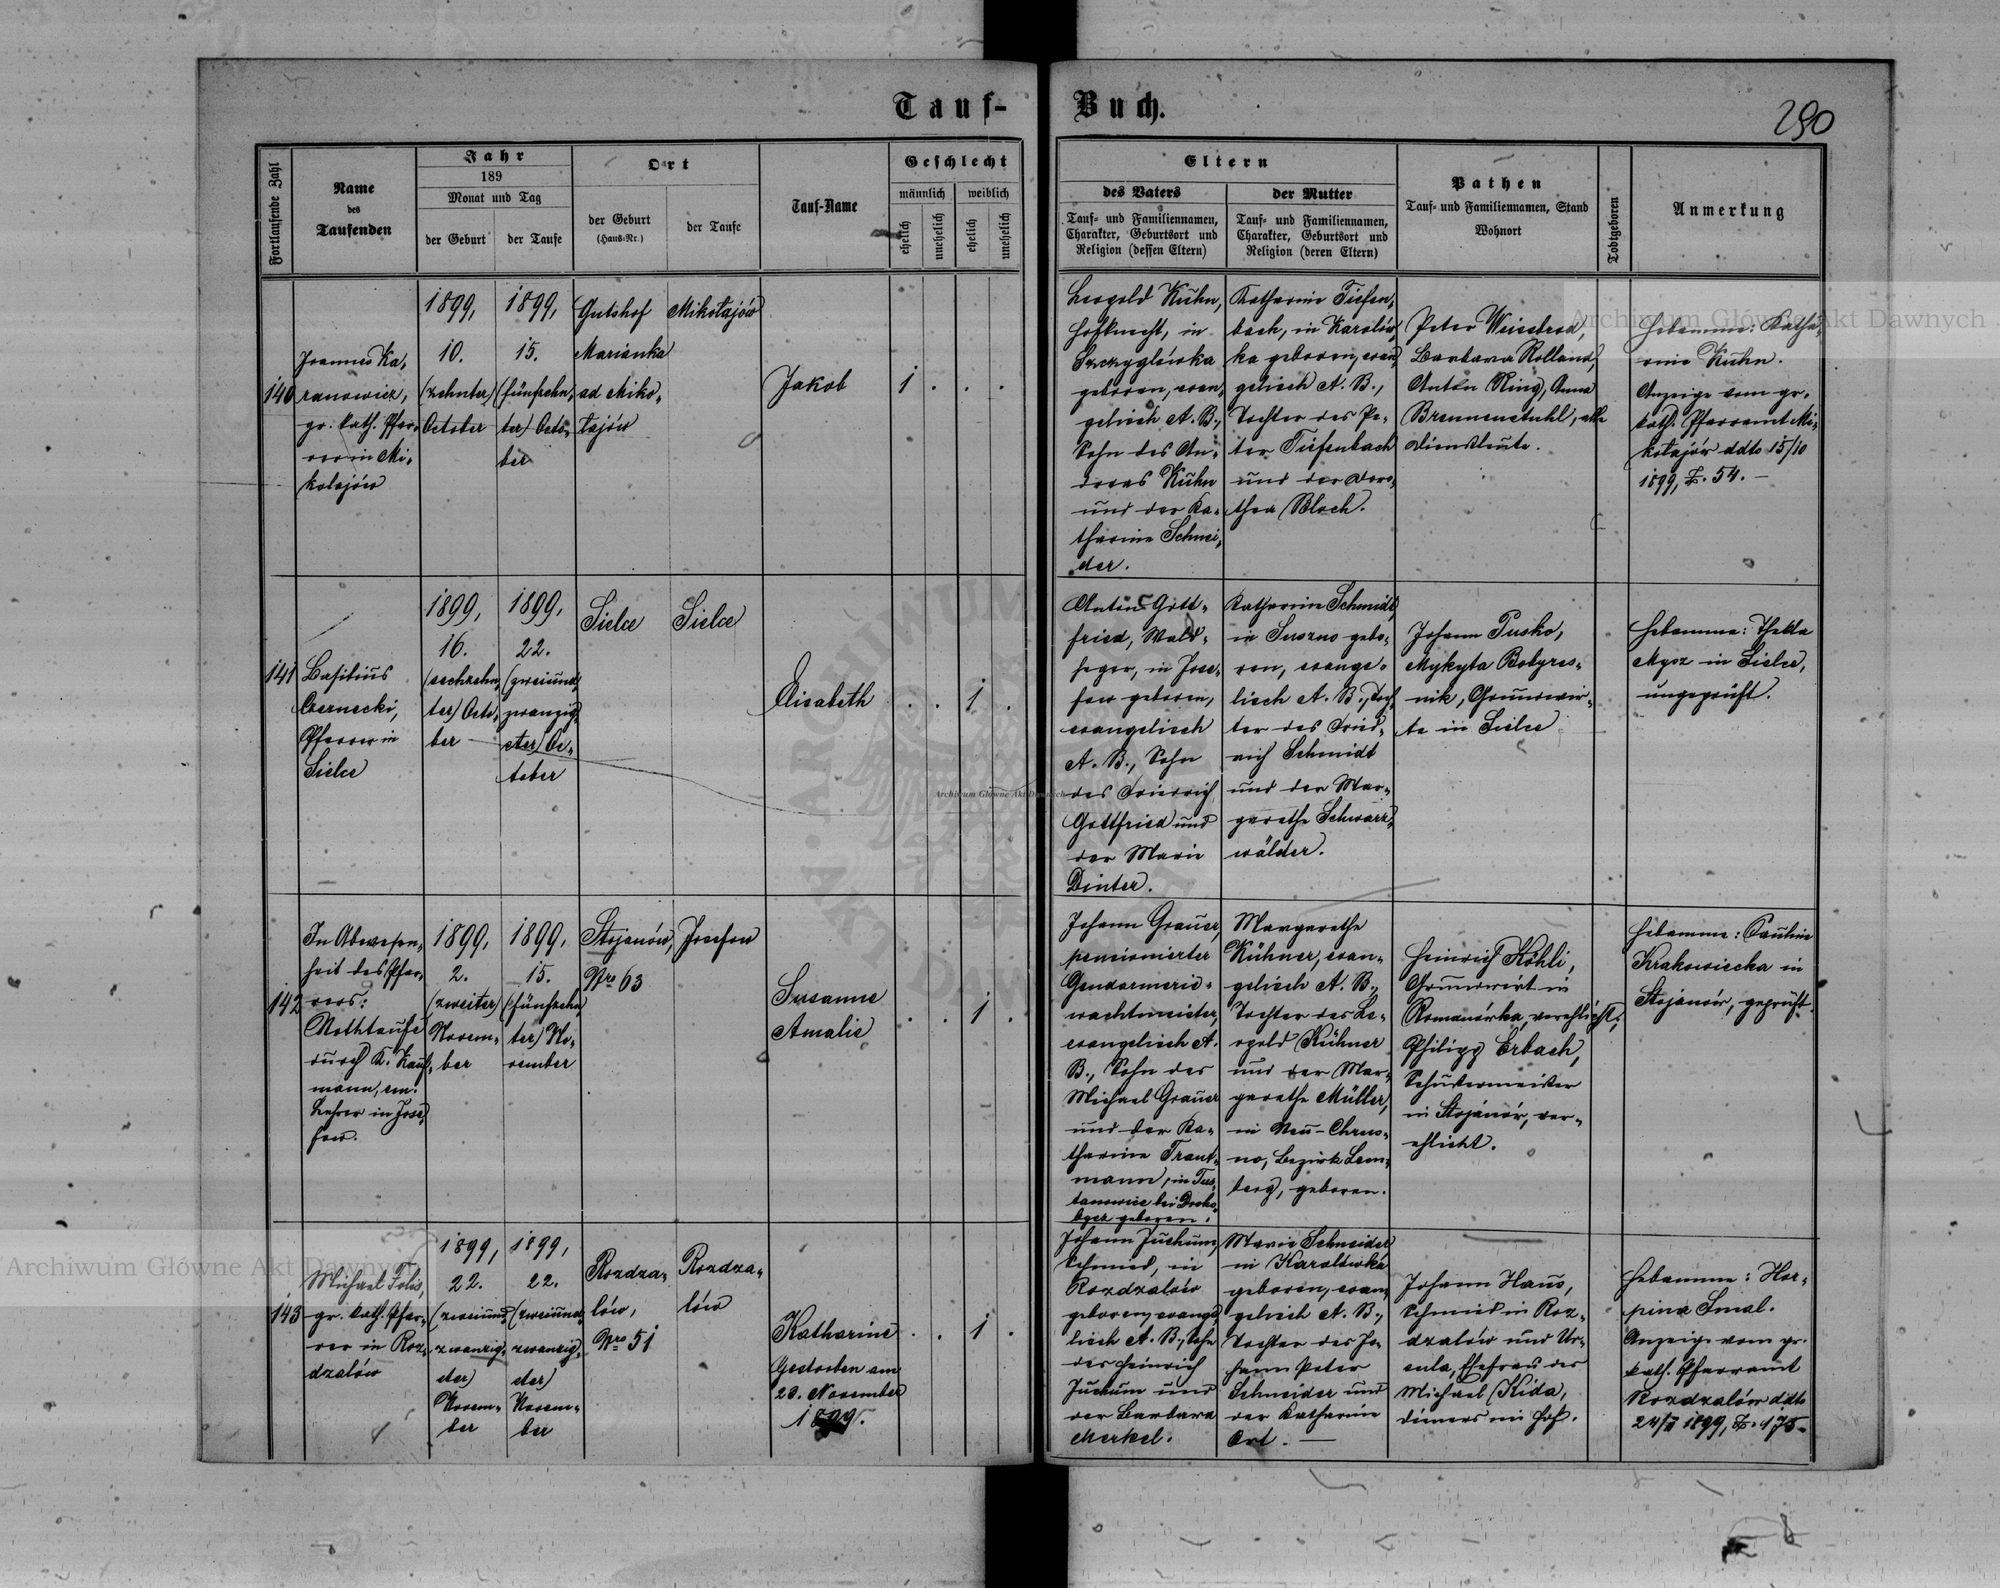 Tauf-Buch.
290
Fortlaufende Zahl
Name
des
Taufenden
Jahr
189
Monat und Tag
der Geburt
der Taufe
Ort
der Geburt
(Haus-Nr.)
der Taufe
Tauf-Name
Geschlecht
männlich
weiblich
ehelich
unehelich
ehelich
unehelich
Eltern
des Vaters
Tauf- und Familiennamen,
Charakter, Geburtsort und
Religion (dessen Eltern)
der Mutter
Tauf- und Familiennamen,
Charakter, Geburtsort und
Religion (deren Eltern)
Pathen
Tauf- und Familiennamen, Stand
Wohnort
Todtgeboren
Anmerkung
140
Joannes Ka-
ranowicz,
gr. kath. Pfar-
rer in Mi-
kolajów
1899,
10.
(zehnter)
October
1899,
15.
(fünfzehn-
ter) Octo-
ber
Gutshof
Marianka
ad Miko-
łajów
Mikołajów
Jakob
1 . . .
Leopold Kuhn,
Hofknecht, in
Szczyglówka
geboren, evan-
gelisch A. B.,
Sohn des An-
dreas Kuhn
und der Ka-
tharine Schnei-
der.
Katharine Tiefen-
bach, in Karolów-
ka geboren, evan-
gelisch A. B.,
Tochter des Pe-
ter Tiefenbach
und der Doro-
thea Bloch.
Peter Weissbrod,
Barbara Rolland,
Anton Ring, Anna
Brennenstuhl, alle
Dienstleute.
Hebamme: Katha-
rine Kuhn.
Anzeige vom gr.
kath. Pfarramt Mi-
kołajów ddto 15/10
1899, Z. 54. —
141
Basilius
Czernecki,
Pfarrer in
Sielce
1899,
16.
(sechzehn-
ter) Octo-
ber
1899,
22.
(zweiund-
zwanzig-
ster) Oc-
tober
Sielce
Sielce
Elisabeth
. . 1 .
Anton Gott-
fried, Wald-
heger, in Jose-
fow geboren,
evangelisch
A. B., Sohn
des Friedrich
Gottfried und
der Marie
Dinter.
Katharine Schmidt,
in Suszno gebo-
ren, evange-
lisch A. B., Toch-
ter des Fried-
rich Schmidt
und der Mar-
garethe Schwarz-
wälder.
Johann Pusko,
Mykyta Bobyres-
nik, Grundwir-
te in Sielce
Hebamme: Thekla
Mysz in Sielce,
ungeprüft.
142
In Abwesen-
heit des Pfar-
rers:
Nothtaufe
durch K. Kauf-
mann, em.
Lehrer in Jose-
fow.
1899,
2.
(zweiter)
Novem-
ber
1899,
15.
(fünfzehn-
ter) No-
vember
Stojanów,
Nro 63
Josefow
Susanne
Amalie
. . 1 .
Johann Grauer,
pensionierter
Gendarmerie-
wachtmeister,
evangelisch A.
B., Sohn des
Michael Grauer
und der Ka-
tharine Traut-
mann, in Tus-
tanowice bei Droho-
bycz geboren.
Margarethe
Kühner, evan-
gelisch A. B.,
Tochter des Le-
opold Kühner
und der Mar-
garethe Müller,
in Neu-Chrus-
no, Bezirk Lem-
berg, geboren.
Heinrich Köhli,
Grundwirt in
Romanówka, verehlicht;
Philipp Erbach,
Schustermeister
in Stojanów, ver-
ehlicht.
Hebamme: Pauline
Krakowiecka in
Stojanów, geprüft.
143
Michael Folis,
gr. kath. Pfar-
rer in Roz-
dzalów
1899,
22.
(zweiund-
zwanzig-
ster)
Novem-
ber
1899,
22.
(zweiund-
zwanzig-
ster)
Novem-
ber
Rozdza-
lów,
Nro 51
Rozdza-
lów
Katharine
Gestorben am
23. November
1899.
. . 1 .
Johann Juchum,
Schmied, in
Rozdzalów
geboren, evange-
lisch A. B., Sohn
des Heinrich
Juchum und
der Barbara
Merkel.
Marie Schneider
in Karolówka
geboren, evan-
gelisch A. B.,
Tochter des Jo-
hann Peter
Schneider und
der Katharine
Ort. —
Johann Haus,
Schmied in Roz-
dzalów und Ur-
sula, Ehefrau des
Michael Kida,
Dieners im Hof.
Hebamme: Hor-
pina Smal.
Anzeige vom gr.
kath. Pfarramt
Rozdzalów ddto
1899, Z. 175.
Archiwum Główne Akt Dawnych
Archiwum Główne Akt Dawnych
Archiwum Główne Akt Dawnych